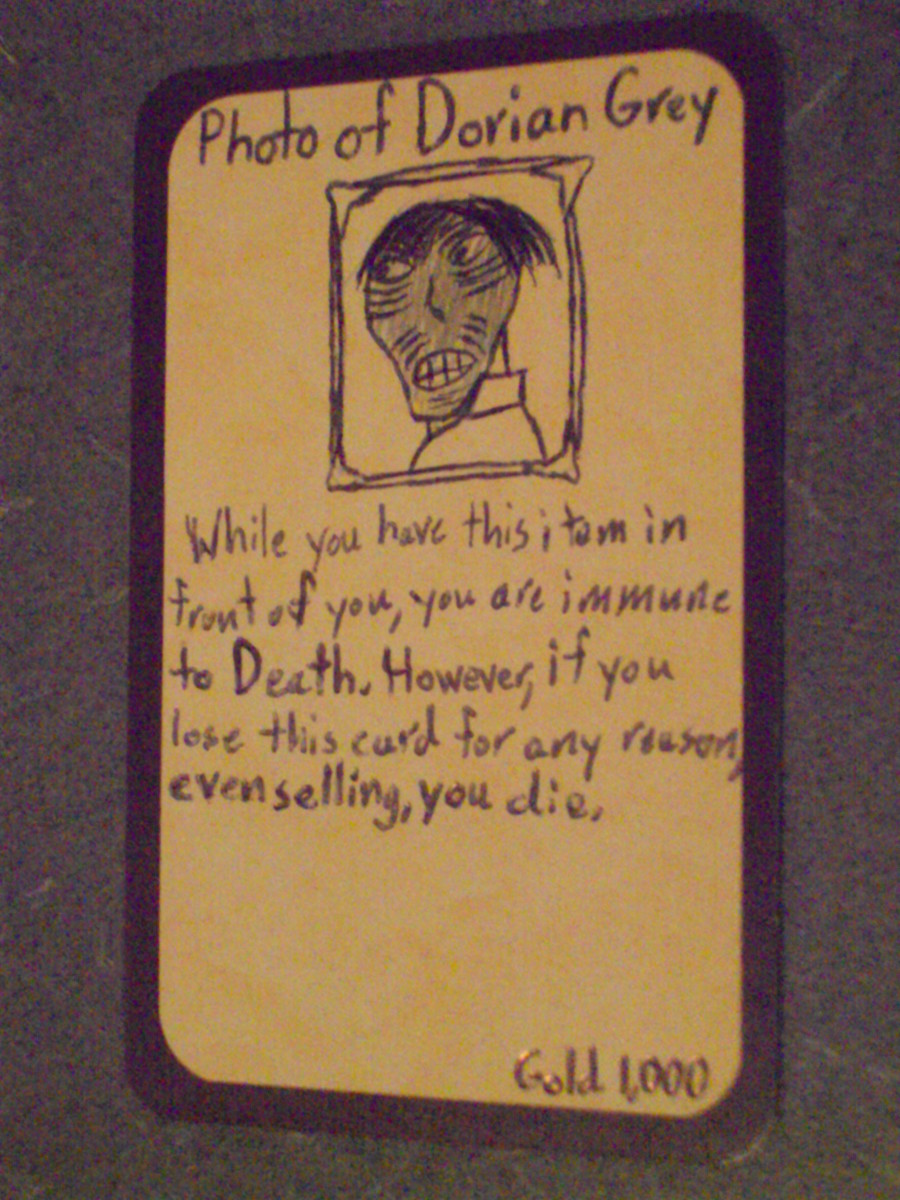 Photo of Dorian Grey
While you have this item in
front of you, you are immune
to Death. However, if you
lose this card for any reason,
even selling, you die.
Gold 1,000